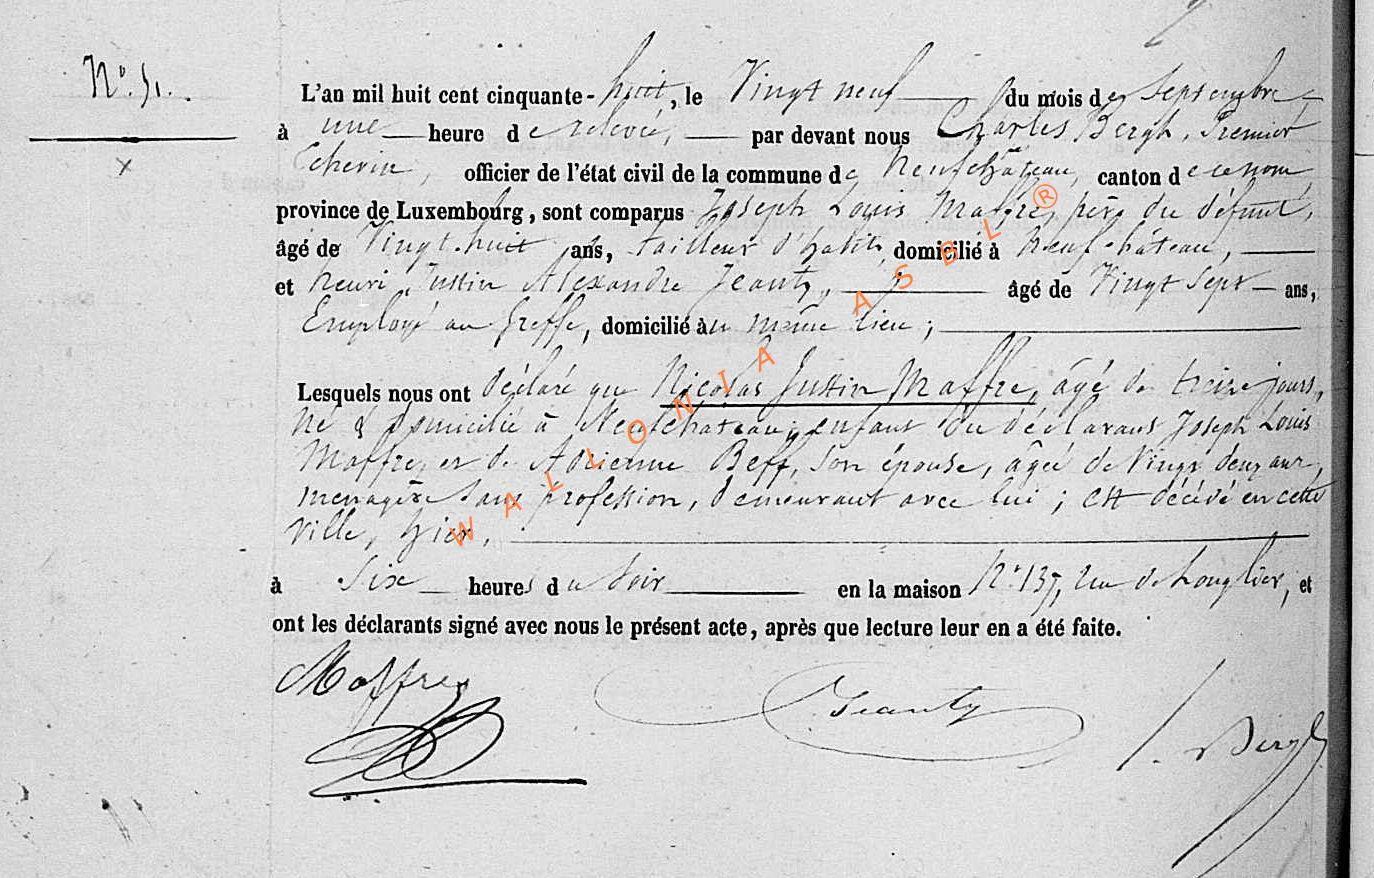 N° 51.
L'an mil huit cent cinquante-huit, le Vingt neuf du mois de Septembre
à une heure de relevée, par devant nous Charles Bergh, Premier
Echevin, officier de l'état civil de la commune de Neufchâteau, canton de ce nom,
province de Luxembourg, sont comparus Joseph Louis Maffre, père du défunt,
âgé de Vingt-huit ans, tailleur d'habits, domicilié à Neufchâteau,
et henri Justin Alexandre Jeanty, âgé de Vingt sept ans,
Employé au Greffe, domicilié au même lieu;
Lesquels nous ont déclaré que Nicolas Justin Maffre, âgé de treize jours,
né & domicilié à Neufchateau, enfant du déclarant Joseph Louis
Maffre, et de Adrienne Beff, son épouse, agée de Vingt deux ans,
menagère sans profession, demeurant avec lui; est décédé en cette
ville, hier,
à Six heures du soir en la maison N° 137, rue de Longlier, et
ont les déclarants signé avec nous le présent acte, après que lecture leur en a été faite.
Maffre Jeanty Bergh
WALLONIA ASBL ®